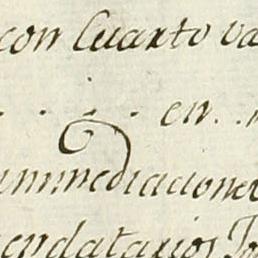 con Cuarto va
. . . . en. .
inmediaciones
endatarios Jo